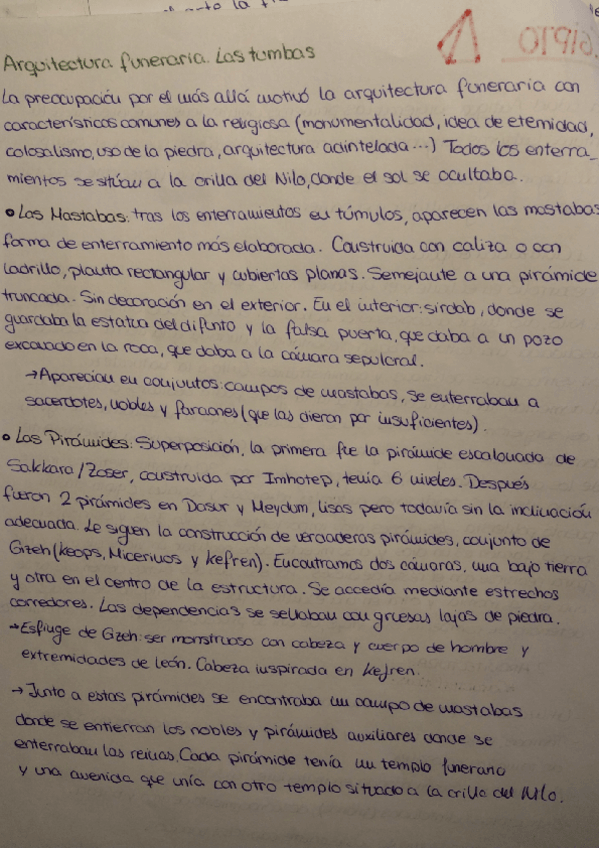 Arquitectura funeraria. Las tumbas
La preocupación por el más allá motivó la arquitectura funeraria con
características comunes a la religiosa (monumentalidad, idea de eternidad,
colosalismo, uso de la piedra, arquitectura adintelada...) Todos los enterra_
mientos se sitúan a la orilla del Nilo, donde el sol se ocultaba.
• Las Mastabas: tras los enterramientos en túmulos, aparecen las mastabas
forma de enterramiento más elaborada. Construida con caliza o con
ladrillo, planta rectangular y cubiertas planas. Semejante a una pirámide
truncada. Sin decoración en el exterior. En el interior: sirdab, donde se
guardaba la estatua del difunto y la falsa puerta, que daba a un pozo
excavado en la roca, que daba a la cámara sepulcral.
→ Aparecían en conjuntos: campos de mastabas, se enterraban a
sacerdotes, nobles y faraones (que las dieron por insuficientes).
• Las Pirámides: Superposición, la primera fue la pirámide escalonada de
Sakkara / Zoser, construida por Imhotep, tenía 6 niveles. Después
fueron 2 pirámides en Dasur y Meydum, lisas pero todavía sin la inclinación
adecuada. Le siguen la construcción de verdaderas pirámides, conjunto de
Gizeh (Keops, Micerinos y Kefren). Encontramos dos cámaras, una bajo tierra
y otra en el centro de la estructura. Se accedía mediante estrechos
corredores. Las dependencias se sellaban con gruesas lajas de piedra.
→ Esfinge de Gizeh: ser monstruoso con cabeza y cuerpo de hombre y
extremidades de león. Cabeza inspirada en Kefren.
→ Junto a estas pirámides se encontraba un campo de mastabas
donde se entierran los nobles y pirámides auxiliares donde se
enterraban las reinas. Cada pirámide tenía un templo funerario
y una avenida que unía con otro templo situado a la orilla del Nilo.